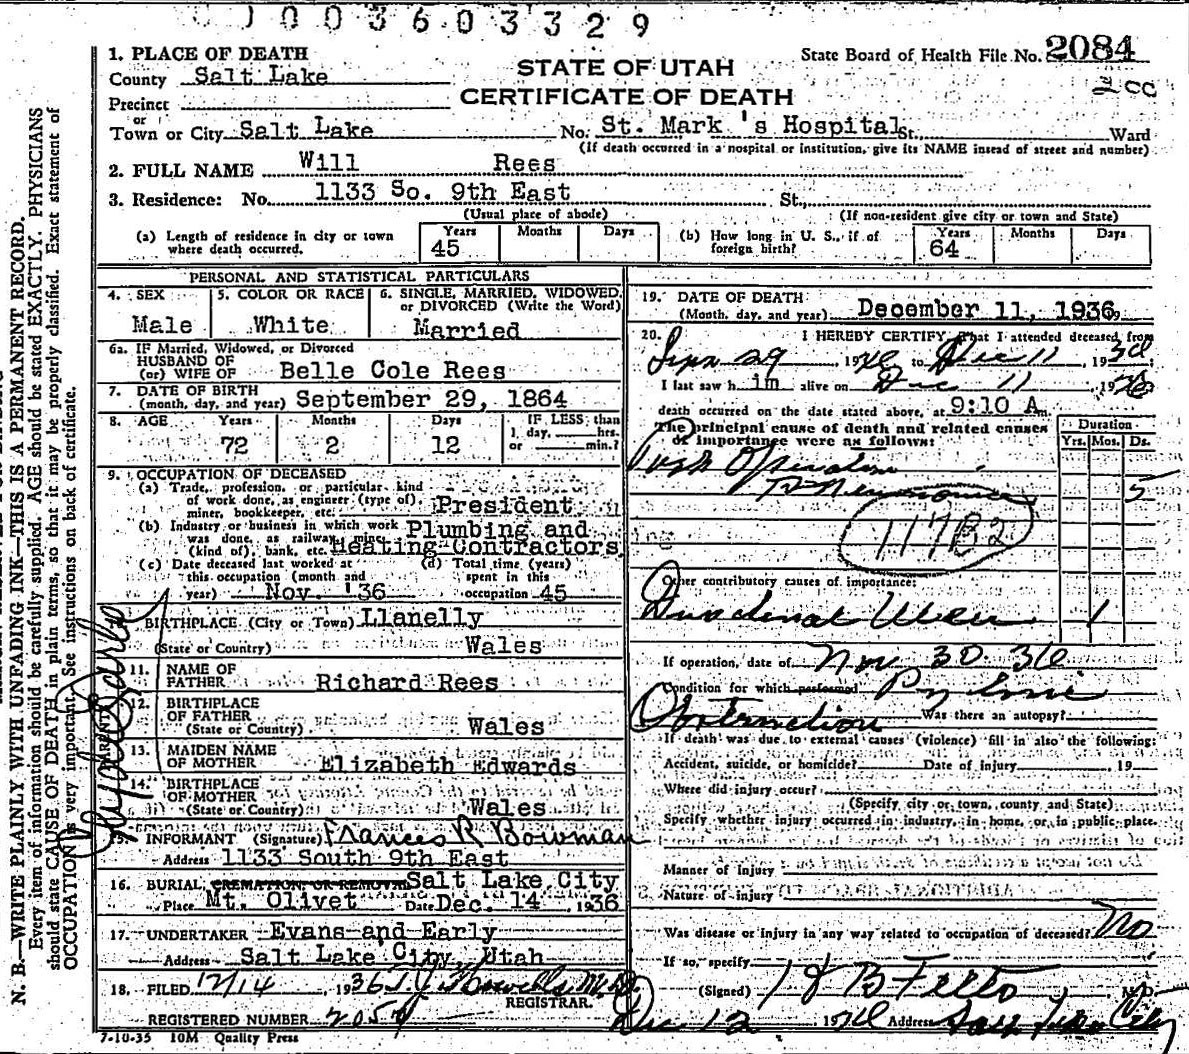 1003603329
1. PLACE OF DEATH
County Salt Lake
Precinct
or
Town or City Salt Lake
STATE OF UTAH
CERTIFICATE OF DEATH
State Board of Health File No. 2084
No. St. Mark 's Hospital St. Ward
(If death occurred in a hospital or institution, give its NAME insead of street and number)
2. FULL NAME Will Rees
3. Residence: No. 1133 So. 9th East St.,
(Usual place of abode) (If non-resident give city or town and State)
(a) Length of residence in city or town where death occurred. Years 45 Months Days
(b) How long in U. S., if of foreign birth? Years 64 Months Days
PERSONAL AND STATISTICAL PARTICULARS
4. SEX Male
5. COLOR OR RACE White
6. SINGLE, MARRIED, WIDOWED, or DIVORCED (Write the Word) Married
6a. IF Married, Widowed, or Divorced
HUSBAND OF
(or) WIFE OF Belle Cole Rees
7. DATE OF BIRTH
(month, day, and year) September 29, 1864
8. AGE Years 72 Months 2 Days 12
IF LESS than
1 day, hrs.
or min.?
9. OCCUPATION OF DECEASED
(a) Trade, profession, or particular kind
of work done, as engineer (type of),
miner, bookkeeper, etc. President
(b) Industry or business in which work
was done, as railway, mine,
(kind of), bank, etc. Plumbing and Heating Contractors
(c) Date deceased last worked at
this occupation (month and
year) Nov. '36
(d) Total time (years)
spent in this
occupation 45
BIRTHPLACE (City or Town) Llanelly
(State or Country) Wales
11. NAME OF
FATHER Richard Rees
12. BIRTHPLACE
OF FATHER
(State or Country) Wales
13. MAIDEN NAME
OF MOTHER Elizabeth Edwards
14. BIRTHPLACE
OF MOTHER
(State or Country) Wales
15. INFORMANT (Signature) Frances R Bowman
Address 1133 South 9th East
16. BURIAL, CREMATION, OR REMOVAL Salt Lake City
Place Mt. Olivet Date Dec. 14 1936
17. UNDERTAKER Evans and Early
Address Salt Lake City, Utah
18. FILED 12/14, 1936
REGISTRAR.
REGISTERED NUMBER 2059
7-10-35 10M Quality Press
19. DATE OF DEATH
(Month, day, and year) December 11, 1936
20. I HEREBY CERTIFY, That I attended deceased from
Sept 29, 1936 to Dec 11, 1936
I last saw him alive on Dec 11 1936
death occurred on the date stated above, at 9:10 A m.
The principal cause of death and related causes
of importance were as follows:
Duration
Yrs. Mos. Ds.
Post Operative
Pneumonia 5
117B2
Other contributory causes of importance:
Duodenal Ulcer 1
If operation, date of Nov 30-36
Condition for which performed Pyloric
Obstruction Was there an autopsy?
If death was due to external causes (violence) fill in also the following:
Accident, suicide, or homicide? Date of injury , 19
Where did injury occur?
(Specify city or town, county and State)
Specify whether injury occurred in industry, in home, or in public place.
Manner of Injury
Nature of injury
Was disease or injury in any way related to occupation of deceased? No
If so, specify
(Signed) M. D.
Dec 12 1936 Address Salt Lake City
N. B.—WRITE PLAINLY WITH UNFADING INK—THIS IS A PERMANENT RECORD.
Every item of information should be carefully supplied. AGE should be stated EXACTLY. PHYSICIANS
should state CAUSE OF DEATH in plain terms, so that it may be properly classified. Exact statement of
OCCUPATION is very important. See instructions on back of certificate.
PARENTS